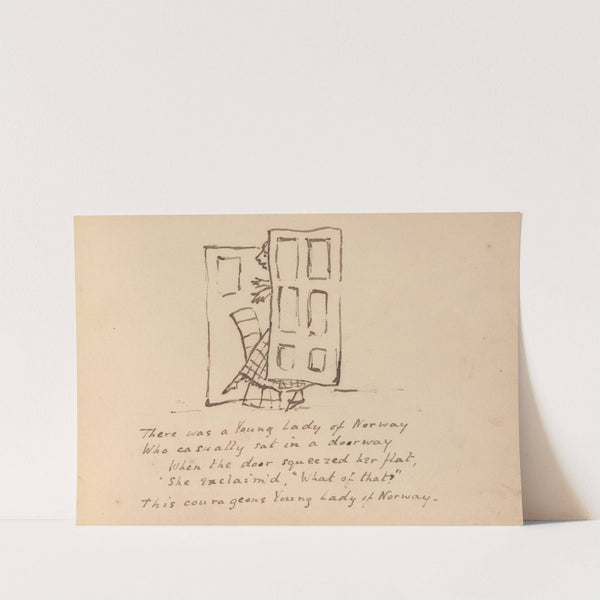 There was a Young Lady of Norway
Who casually sat in a doorway
When the door squeezed her flat,
She exclaim'd, "What of that?"
This courageous Young Lady of Norway.